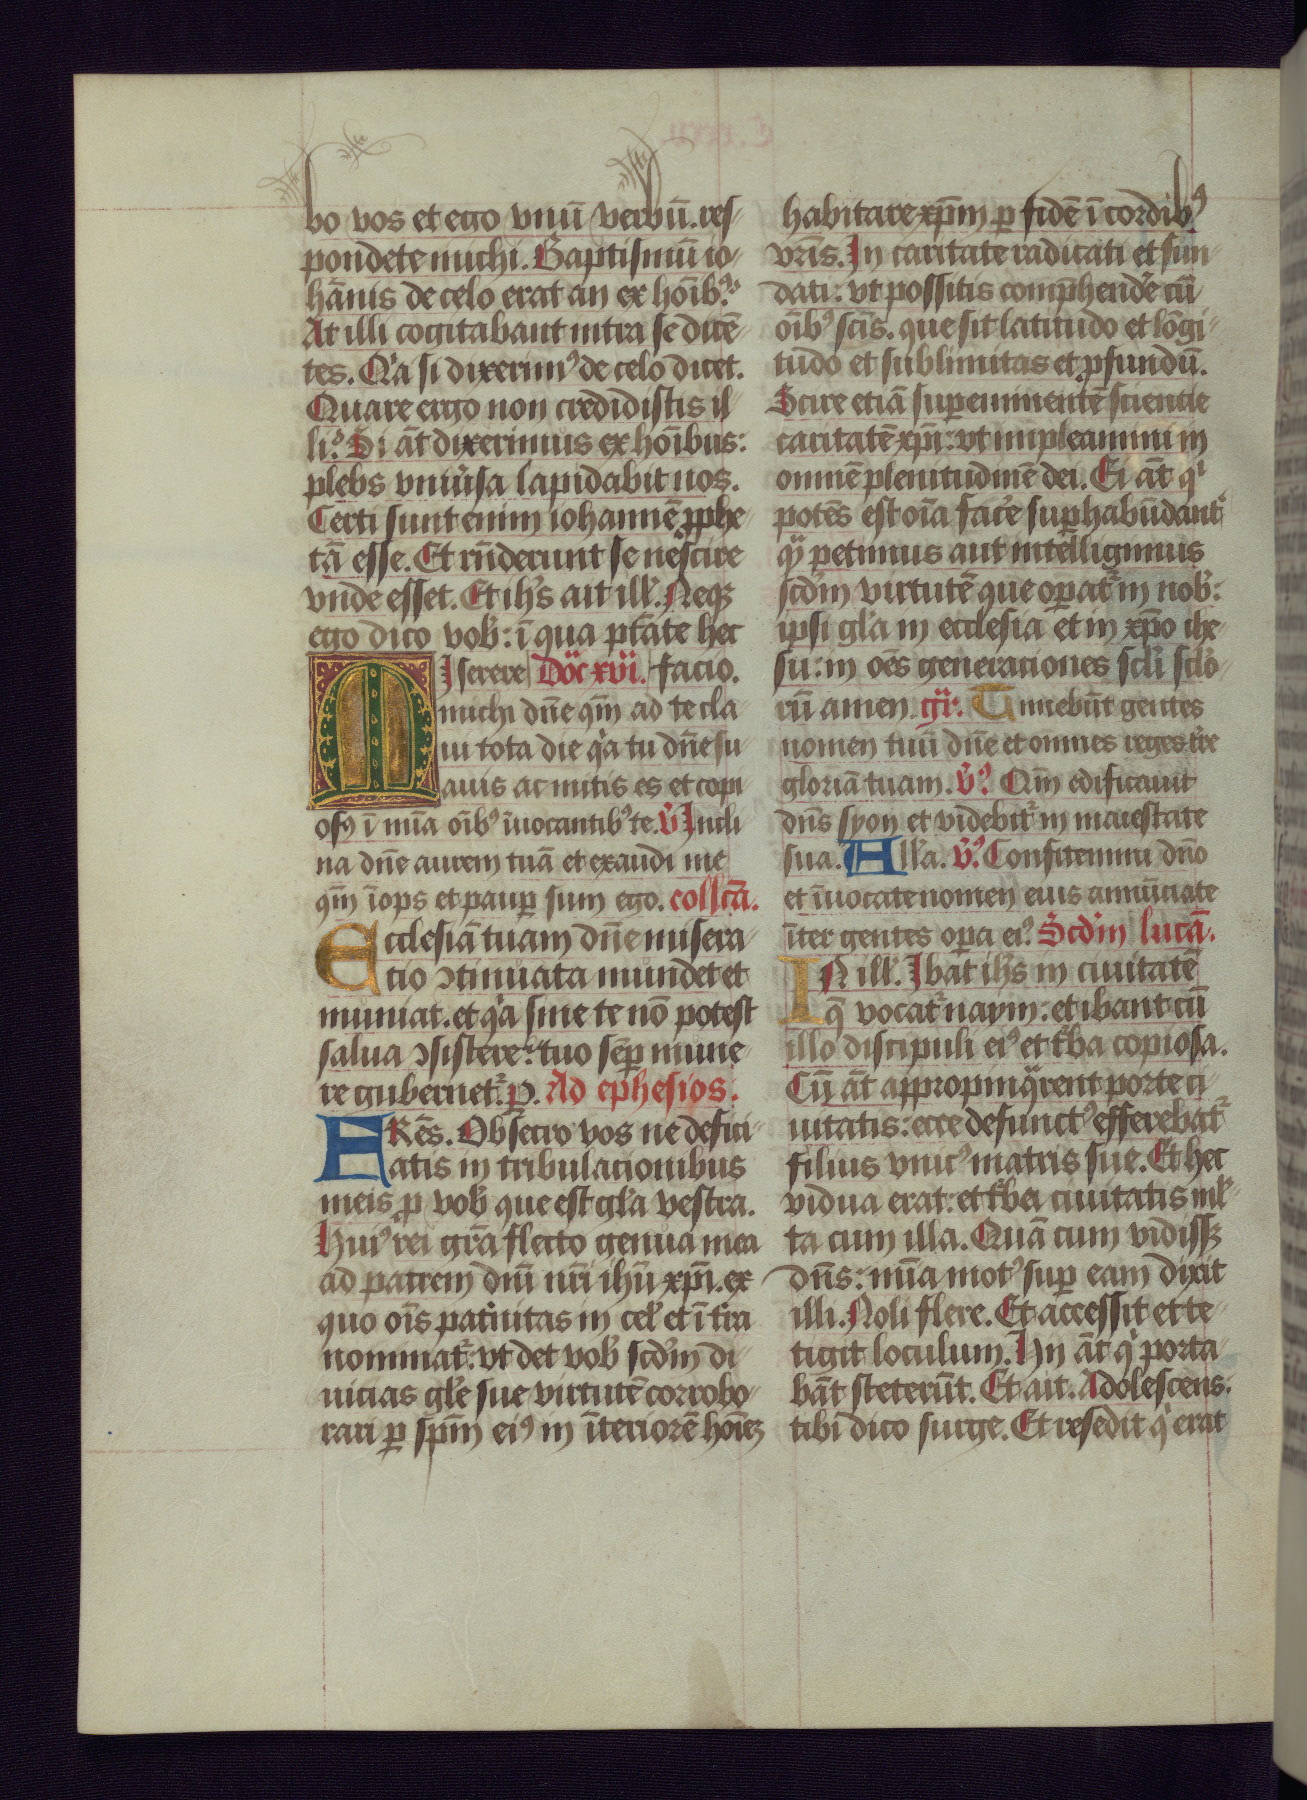 bo vos et ego vnū verbū. res-
pondete michi. Baptismū io-
hānis de celo erat an ex hoīb᷒?
At illi cogitabant intra se dicē-
tes. Qa si dixerim᷒ de celo dicet.
Quare ergo non credidistis il-
li? Si āt dixerimus ex hoībus:
plebs vniusa lapidabit nos.
Certi sunt enim iohannē pphe-
tā esse. Et rn̄derunt se nescire
vnde esset. Et ihs ait ill'. Neqʒ
ego dico vob': ī qua ptāte hec
facio.
Doc xvi.
Miserere
michi dn̄e qm̄ ad te cla
ui tota die qa tu dn̄e su
auis ac mitis es et copi
os᷒ ī mīa oīb᷒ īuocantib᷒ te. V̄ Incli
na dn̄e aurem tuā et exaudi me
qm̄ īops et paup sum ego. coll'cā.
Ecclesiā tuam dn̄e misera-
tio ꝯtinuata mundet et
muniat. et qa sine te nō potest
salua ꝯsistere: tuo sēp mune-
re gubernet᷑. p. Ad ephesios.
FRēs. Obsecro vos ne defici-
atis in tribulacionibus
meis ꝓ vob' que est gl'a vestra.
Hui᷒ rei grā flecto genua mea
ad patrem dn̄i nr̄i ihū xp̄i. ex
quo oīs pat'nitas in cel' et ī t'ra
nominat᷑: vt det vob' scd'm di-
uicias gl'e sue virtutē corrobo-
rari ꝑ sp̄m ei᷒ in īteriorē hoīeʒ
habitare xp̄m ꝑ fidē ī cordib᷒
vr̄is. In caritate radicati et fun-
dati: vt possitis comp̄hendē cū
oīb᷒ scīs. que sit latitudo et lōgi-
tudo et sublimitas et ꝓfundū.
Scire etiā supeminentē scientie
caritatē xp̄i: vt impleamini in
omnē plenitudinē dei. Ei āt qⁱ
potēs est oīa facē sup̄habūdant᷑
q̄ petimus aut intelligimus
scd'm virtutē que opat᷑ in nob':
ipsi gl'a in ecclesia et in xp̄o ihe-
su: in oēs generaciones scl'i sclo-
rū amen. gr̄. Timebūt gentes
nomen tuū dn̄e et omnes reges t're
gloriā tuam. V̄᷒ Qm̄ edificauit
dn̄s syon et videbit᷑ in maiestate
sua. All'a. V̄᷒ Confitemini dn̄o
et īuocate nomen eius annūciate
īter gentes opa ei᷒ Scd'm lucā.
IN ill'. Ibat ihs in ciuitatē
q̄ vocat᷑ naym: et ibant cū
illo discipuli ei᷒ et t'ba copiosa.
Cū āt appropinq̄rent porte ci-
uitatis: ecce defunct᷒ efferebat᷑
filius vnic᷒ matris sue. Et hec
vidua erat: et t'ba ciuitatis ml'-
ta cum illa. Quā cum vidissʒ
dn̄s: mīa mot᷒ sup eam dixit
illi. Noli flere. Et accessit et te-
tigit loculum. Hn̄ āt qⁱ porta-
bāt steterūt. Et ait. Adolescens.
tibi dico surge. Et resedit qⁱ erat